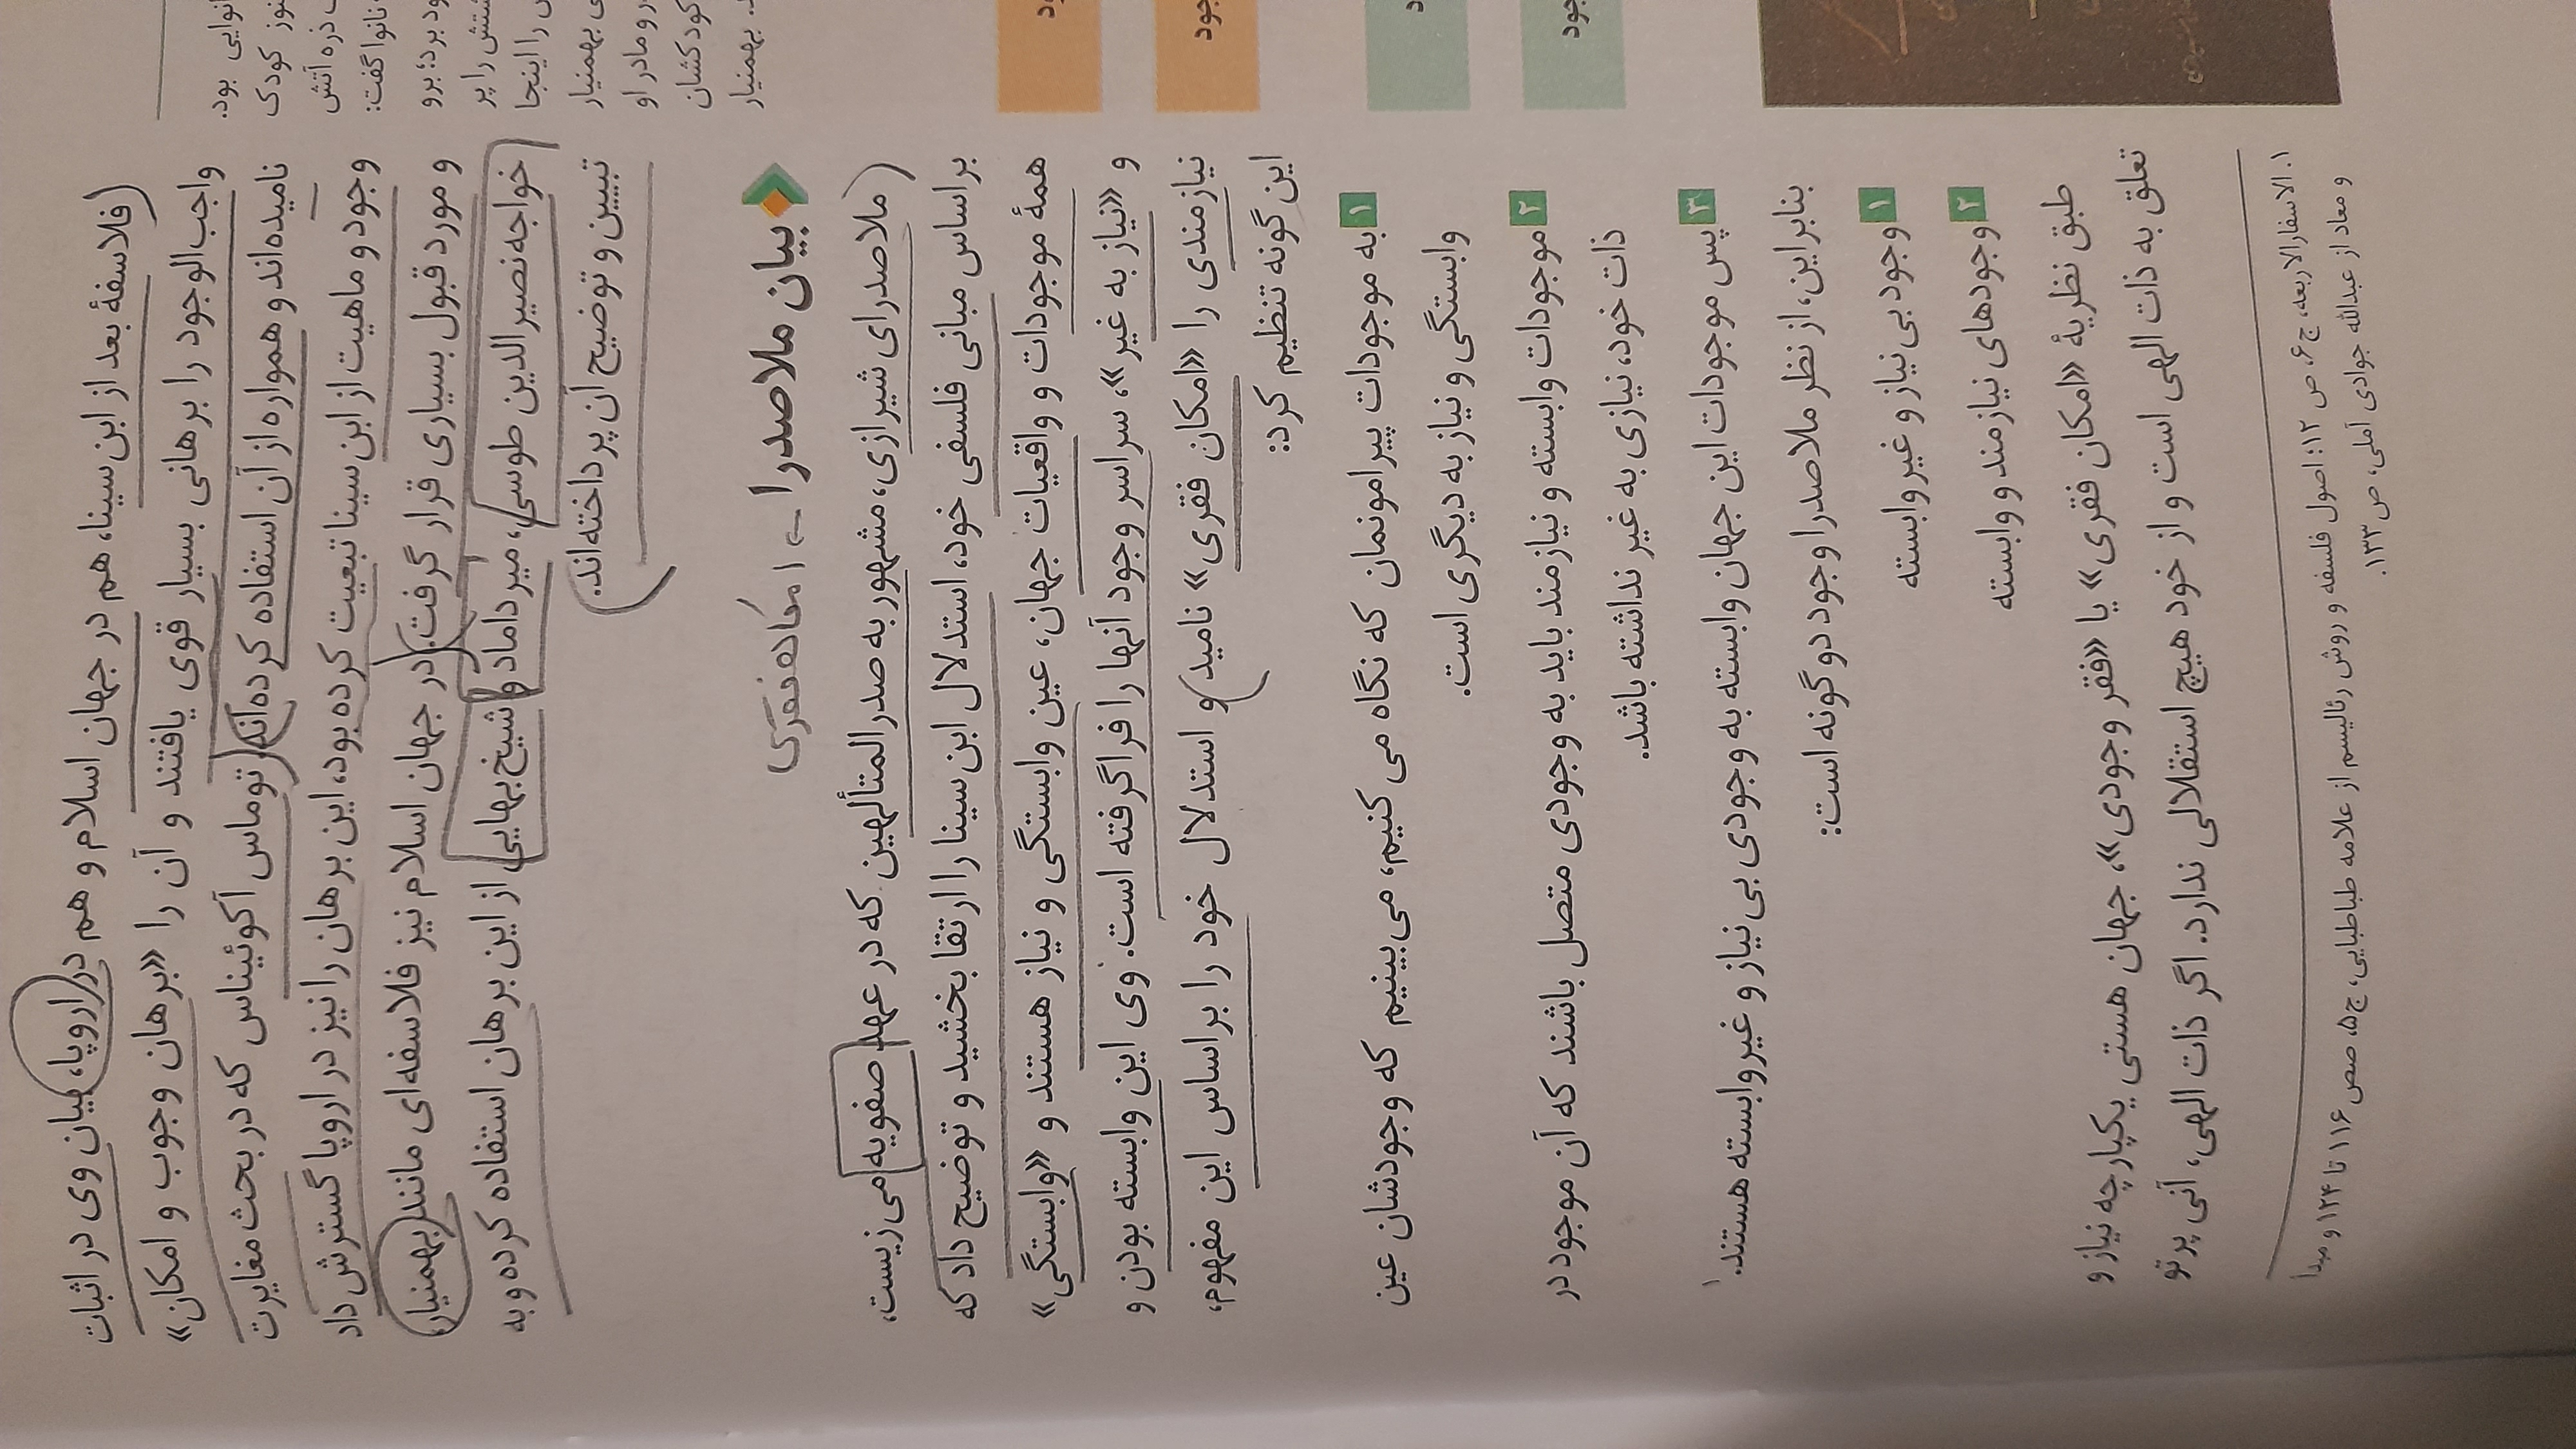 فلاسفهٔ بعد از ابن سینا، هم در جهان اسلام و هم در اروپا، بیان وی در اثبات
واجب الوجود را برهانی بسیار قوی یافتند و آن را «برهان وجوب و امکان»
نامیده‌اند و همواره از آن استفاده کرده‌اند. توماس آکوئیناس که در بحث مغایرت
وجود و ماهیت از ابن سینا تبعیت کرده بود، این برهان را نیز در اروپا گسترش داد
و مورد قبول بسیاری قرار گرفت. در جهان اسلام نیز فلاسفه‌ای مانند بهمنیار،
خواجه نصیرالدین طوسی، میرداماد و شیخ بهایی از این برهان استفاده کرده و به
تبیین و توضیح آن پرداخته‌اند.
بیان ملاصدرا ← امکان فقری
ملاصدرای شیرازی، مشهور به صدرالمتألهین که در عهد صفویه می‌زیست،
براساس مبانی فلسفی خود، استدلال ابن سینا را ارتقا بخشید و توضیح داد که
همهٔ موجودات و واقعیات جهان، عین وابستگی و نیاز هستند و «وابستگی»
و «نیاز به غیر»، سراسر وجود آنها را فراگرفته است. وی این وابسته بودن و
نیازمندی را «امکان فقری» نامید و استدلال خود را براساس این مفهوم،
این گونه تنظیم کرد:
۱ به موجودات پیرامونمان که نگاه می کنیم، می‌بینیم که وجودشان عین
وابستگی و نیاز به دیگری است.
۲ موجودات وابسته و نیازمند باید به وجودی متصل باشند که آن موجود در
ذات خود، نیازی به غیر نداشته باشد.
۳ پس موجودات این جهان وابسته به وجودی بی نیاز و غیروابسته هستند.۱
بنابراین، از نظر ملاصدرا وجود دو گونه است:
۱ وجود بی نیاز و غیروابسته
۲ وجودهای نیازمند و وابسته
طبق نظریهٔ «امکان فقری» یا «فقر وجودی»، جهان هستی یکپارچه نیاز و
تعلق به ذات الهی است و از خود هیچ استقلالی ندارد. اگر ذات الهی، آنی پرتو
۱. الاسفار الاربعه، ج۶، ص ۱۲؛ اصول فلسفه و روش رئالیسم از علامه طباطبایی، ج۵، صص ۱۱۶ تا ۱۲۴ و مبدأ
و معاد از عبدالله جوادی آملی، ص ۱۳۳.
انوایی بود.
نوز کودک
ذره آتش
نانوا گفت:
ود برد؛ برو
شتش را پر
را اینجا
ی بهمنیار
رو مادر او
کودکشان
بهمنیار
جود
جود